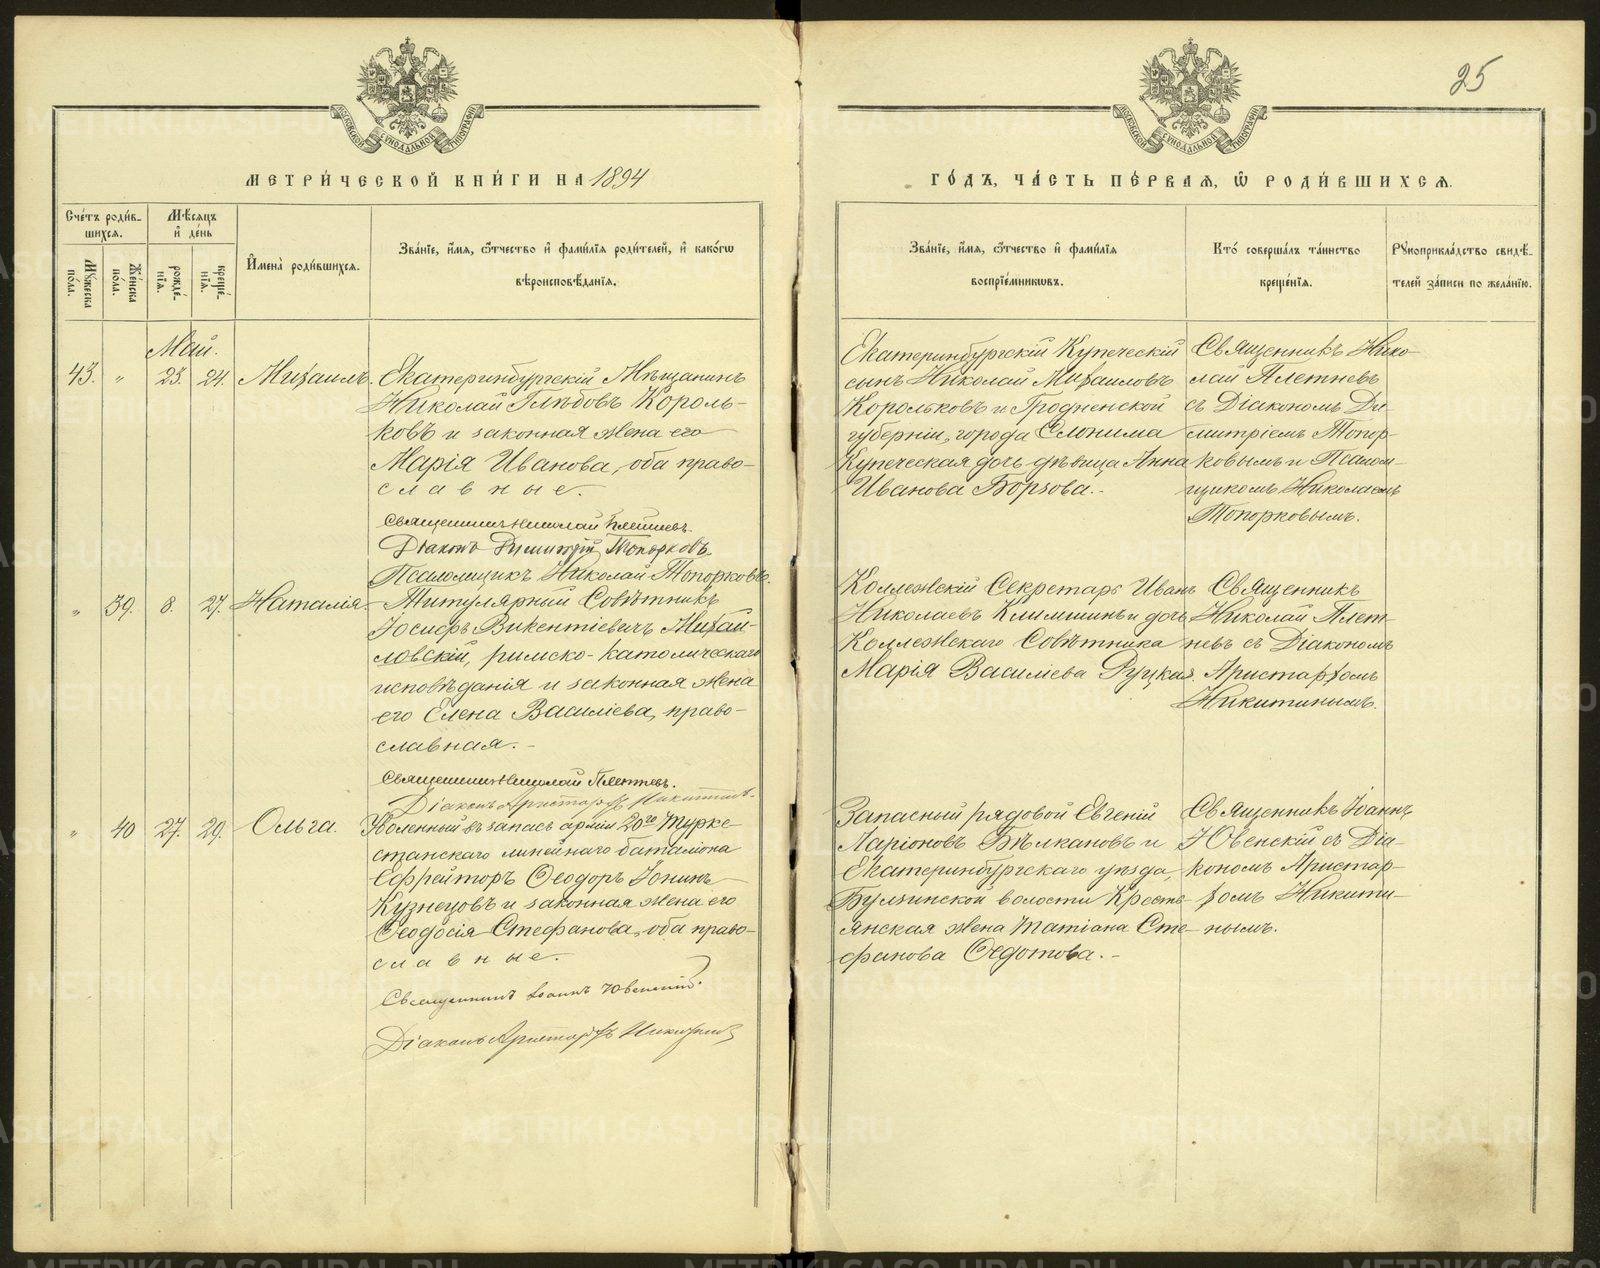 25
МОСКОВСКОЙ СѴНОДАЛЬНОЙ ТИПОГРАФІИ
МОСКОВСКОЙ СѴНОДАЛЬНОЙ ТИПОГРАФІИ
МЕТРИ́ЧЕСКОЙ КНИ́ГИ НА 1894
ГО́ДЪ, ЧА́СТЬ ПЕ́РВАЯ, Ѽ РОДИ́ВШИХСЯ.
Сче́тъ роди́в-
шихся.
Мѣсяцъ
и҆ де́нь
Му́жеска
по́ла.
Же́нска
по́ла.
рожде́-
нїя.
креще́-
нїя.
И҆мена̀ роди́вшихся.
Зва́нїе, и҆́мя, ѻ҆́тчество и҆ фами́лїя роди́телей, и҆ како́гѡ
вѣроисповѣ́данїя.
Зва́нїе, и҆́мя, ѻ҆́тчество и҆ фами́лїя
воспрїе́мникѡвъ.
Кто́ соверша́лъ та́инство
креще́нїя.
Рꙋкоприкла́дство свидѣ́-
телей за́писи по жела́нїю.
Май.
43. " 23. 24. Михаилъ.
Екатеринбургскій Мѣщанинъ
Николай Глѣбовъ Король-
ковъ и законная жена его
Марія Иванова, оба право-
славные.
Священникъ Николай Плетневъ.
Діаконъ Димитрій Топорковъ.
Псаломщикъ Николай Топорковъ.
Екатеринбургскій Купеческій
сынъ Николай Михаиловъ
Корольковъ и Гродненской
губерніи, города Слонима
Купеческая дочь дѣвица Анна
Иванова Борзова.-
Священникъ Нико-
лай Плетневъ
съ Діакономъ Ди-
митріемъ Топор-
ковымъ и Псалом-
щикомъ Николаемъ
Топорковымъ.
" 39. 8. 27. Наталія.
Титулярный Совѣтникъ
Іосифъ Викентіевичъ Михай-
ловскій, римско-католическаго
исповѣданія и законная жена
его Елена Василіева, право-
славная.-
Священникъ Николай Плетневъ.
Діаконъ Аристархъ Никитинъ.
Коллежскій Секретарь Иванъ
Николаевъ Климшинъ и дочь
Коллежскаго Совѣтника
Марія Василіева Руцкая.
Священникъ
Николай Плет-
невъ съ Діакономъ
Аристархомъ
Никитинымъ.
" 40 27. 29. Ольга.
Уволенный въ запасъ арміи 20го Турке-
станскаго линейнаго баталіона
Ефрейторъ Ѳеодоръ Іонинъ
Кузнецовъ и законная жена его
Ѳеодосія Стефанова, оба право-
славные.
Священникъ Іоаннъ Ювенскій.
Діаконъ Аристархъ Никитинъ
Запасный рядовой Евгеній
Ларіоновъ Бѣлкановъ и
Екатеринбургскаго уѣзда,
Булзинской волости Кресть-
янская жена Татіана Сте-
фанова Ѳедотова.-
Священникъ Іоаннъ
Ювенскій съ Діа-
кономъ Аристар-
хомъ Никити-
нымъ.